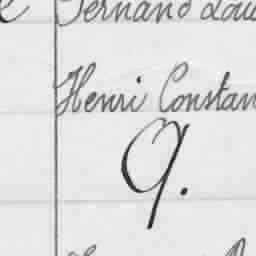 Fernand Lou
Henri Constan
9.